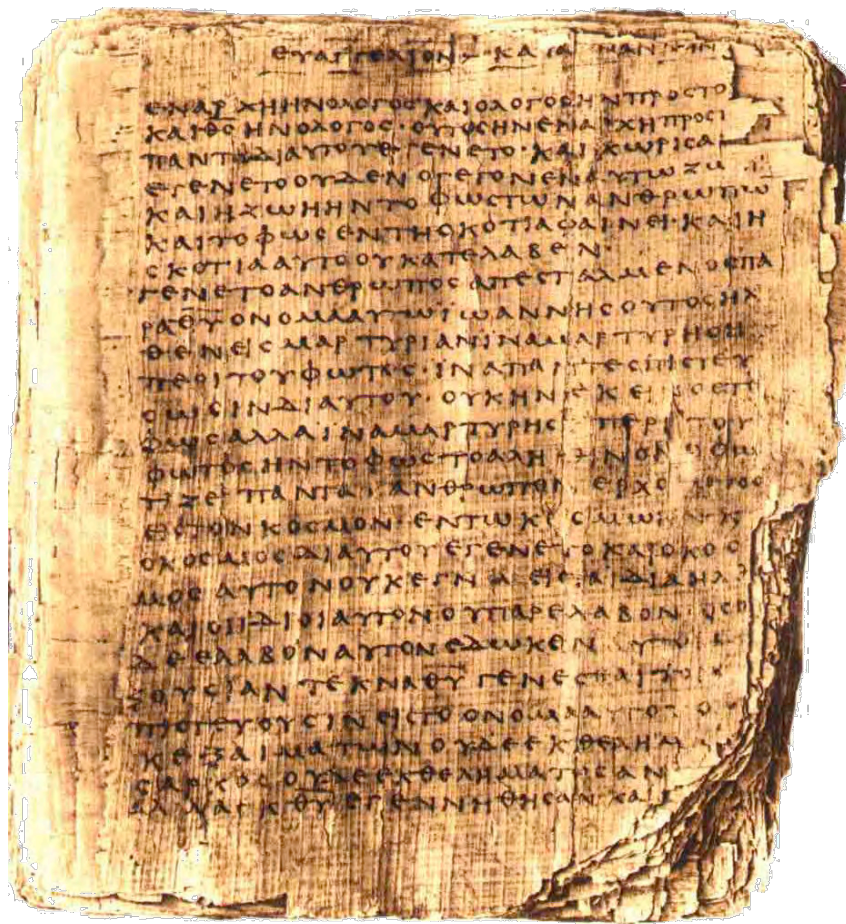 ΕΥΑΓΓΕΛΙΟΝ ΚΑΤΑ
ΕΝΑΡΧΗΗΝΟΛΟΓΟСΚΑΙΟΛΟΓΟСΗΝΠΡΟСΤΟ
ΚΑΙΘ̅С̅ΗΝΟΛΟΓΟС·ΟΥΤΟСΗΝΕΝΑΡΧΗΠΡΟС
ΠΑΝΤΑΔΙΑΥΤΟΥΕΓΕΝΕΤΟ·ΚΑΙΧΩΡΙСΑ
ΕΓΕΝΕΤΟΟΥΔΕΝΟΓΕΓΟΝΕΝΑΥΤΩΖΩ
ΚΑΙΗΖΩΗΗΝΤΟΦΩСΤΩΝΑΝΘΡΩΠΩ
ΚΑΙΤΟΦΩСΕΝΤΗСΚΟΤΙΑΦΑΙΝΕΙ·ΚΑΙΗ
СΚΟΤΙΑΑΥΤΟΟΥΚΑΤΕΛΑΒΕΝ·
ΓΕΝΕΤΟΑΝΘΡΩΠΟСΑΠΕСΤΑΛΜΕΝΟСΠΑ
ΡΑΘ̅Υ̅ΟΝΟΜΑΑΥΤΩΙΩΑΝΝΗСΟΥΤΟСΗΛ
ΘΕΝΕΙСΜΑΡΤΥΡΙΑΝΙΝΑΜΑΡΤΥΡΗСΗ
ΠΕΡΙΤΟΥΦΩΤΟС·ΙΝΑΠΑΝΤΕСΠΙСΤΕΥ
СΩСΙΝΔΙΑΥΤΟΥ·ΟΥΚΗΝΕΚΕΙΝΟСΤΟ
ΦΩСΑΛΛΑΙΝΑΜΑΡΤΥΡΗСΗΠΕΡΙΤΟΥ
ΦΩΤΟСΗΝΤΟΦΩСΤΟΑΛΗΘΙΝΟΝΟΦΩ
ΤΙΖΕΙΠΑΝΤΑΑΝΘΡΩΠΟΝΕΡΧΟΜΕΝΟ
ΕΙСΤΟΝΚΟСΜΟΝ·ΕΝΤΩΚΟСΜΩΗΝΚ
ΟΚΟСΜΟСΔΙΑΥΤΟΥΕΓΕΝΕΤΟΚΑΙΟΚΟС
ΜΟСΑΥΤΟΝΟΥΚΕΓΝΩΕΙСΤΑΙΔΙΑΗΛ
ΚΑΙΟΙΙΔΙΟΙΑΥΤΟΝΟΥΠΑΡΕΛΑΒΟΝ·ΟСΟ
ΔΕΕΛΑΒΟΝΑΥΤΟΝΕΔΩΚΕΝΑΥΤΟ
ΞΟΥСΙΑΝΤΕΚΝΑΘ̅Υ̅ΓΕΝΕСΘΑΙΤΟΙ
ΠΙСΤΕΥΟΥСΙΝΕΙСΤΟΟΝΟΜΑΑΥΤΟΥ
ΚΕΞΑΙΜΑΤΩΝΟΥΔΕΕΚΘΕΛΗΜ
СΑΡΚΟСΟΥΔΕΕΚΘΕΛΗΜΑΤΟСΑΝ
ΑΛΛΑΕΚΘ̅Υ̅ΕΓΕΝΝΗΘΗСΑΝ·ΚΑΙ